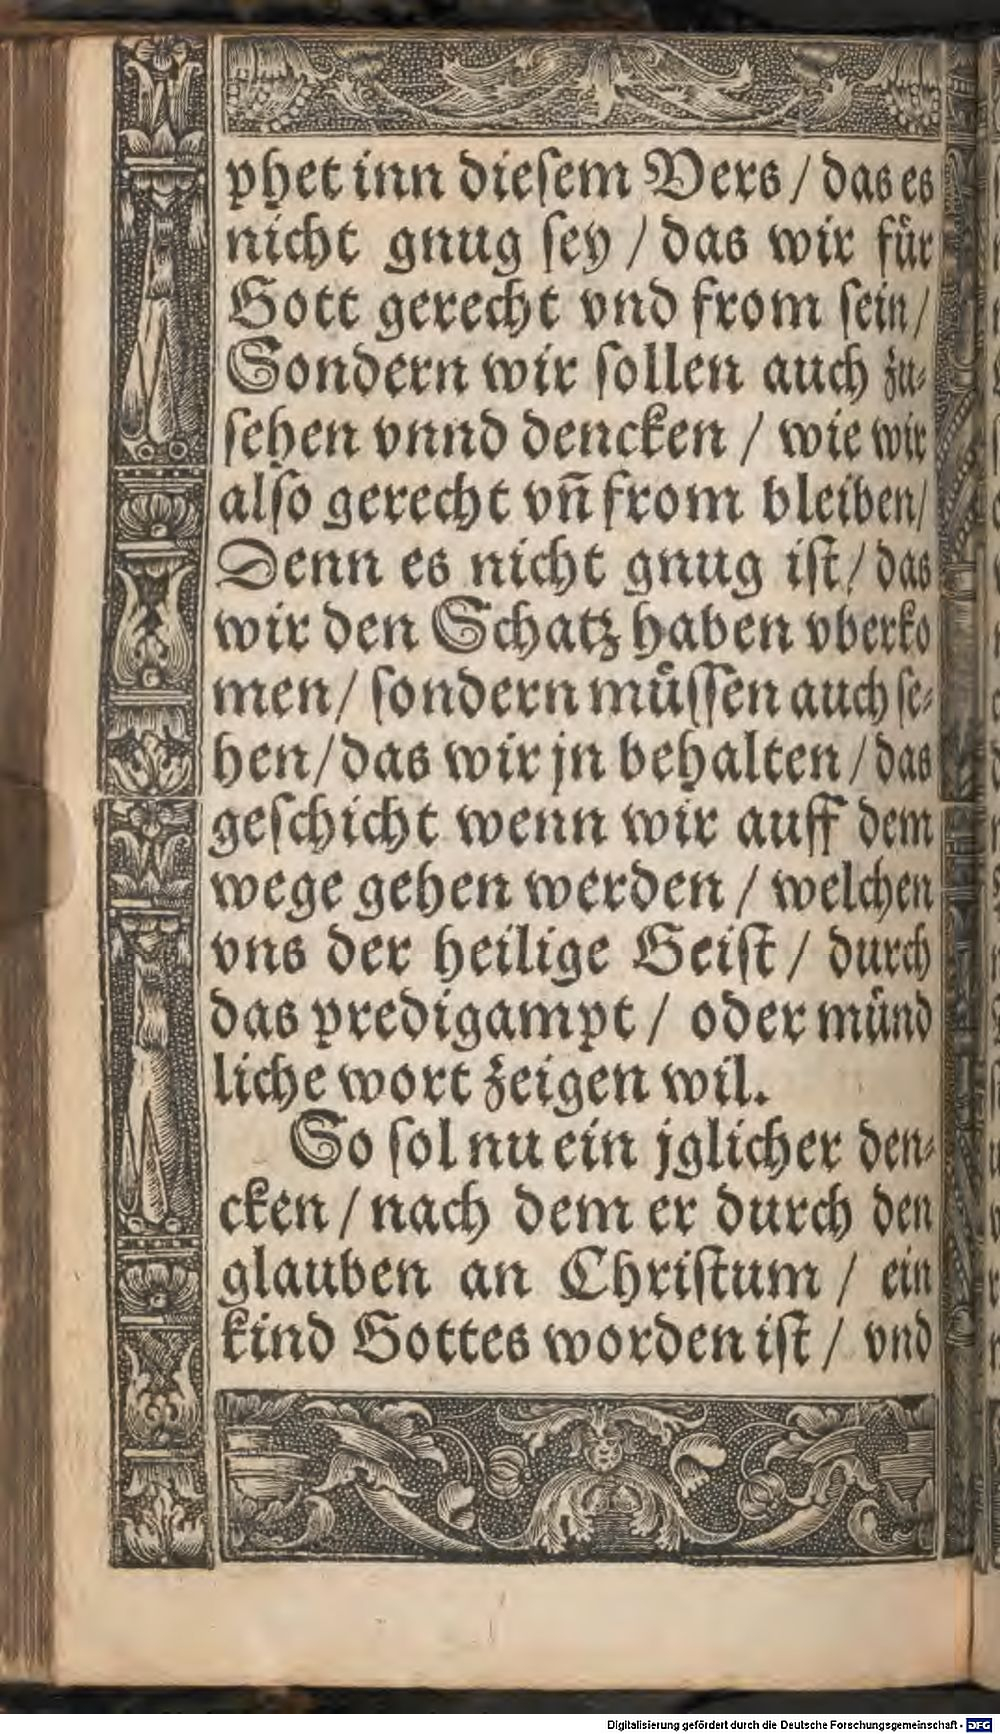 phet inn dieſem Vers / das es
nicht gnug ſey / das wir für
Gott gerecht vnd from ſein /
Sondern wir ſollen auch zu⸗
ſehen vnnd dencken / wie wir
alſo gerecht vñ from bleiben /
Denn es nicht gnug iſt / das
wir den Schatz haben vberko
men / ſondern müſſen auch ſe⸗
hen / das wir jn behalten / das
geſchicht wenn wir auff dem
wege gehen werden / welchen
vns der heilige Geiſt / durch
das predigampt / oder münd
liche wort zeigen wil.
So ſol nu ein jglicher den⸗
cken / nach dem er durch den
glauben an Chriſtum / ein
kind Gottes worden iſt / vnd
Digitalisierung gefördert durch die Deutsche Forschungsgemeinschaft - DFG